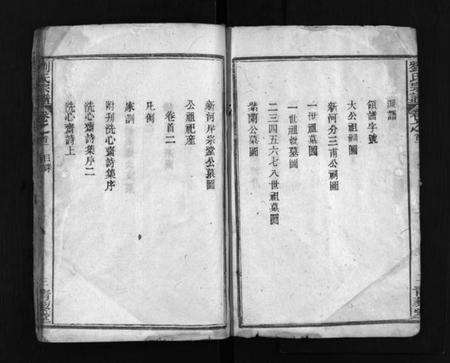 劉氏宗譜 卷之首
領譜字號
大公祖祠圖
新河分三甫公祠圖
一世祖墓圖
一世祖妣墓圖
二三四五六七八世祖墓圖
紫蘭公墓圖
新河岸宗堂公墓圖
公祖祀產
卷首二
凡例
家訓
附刊洗心齋詩集序
洗心齋詩集序二
洗心齋詩上
三 青藜堂